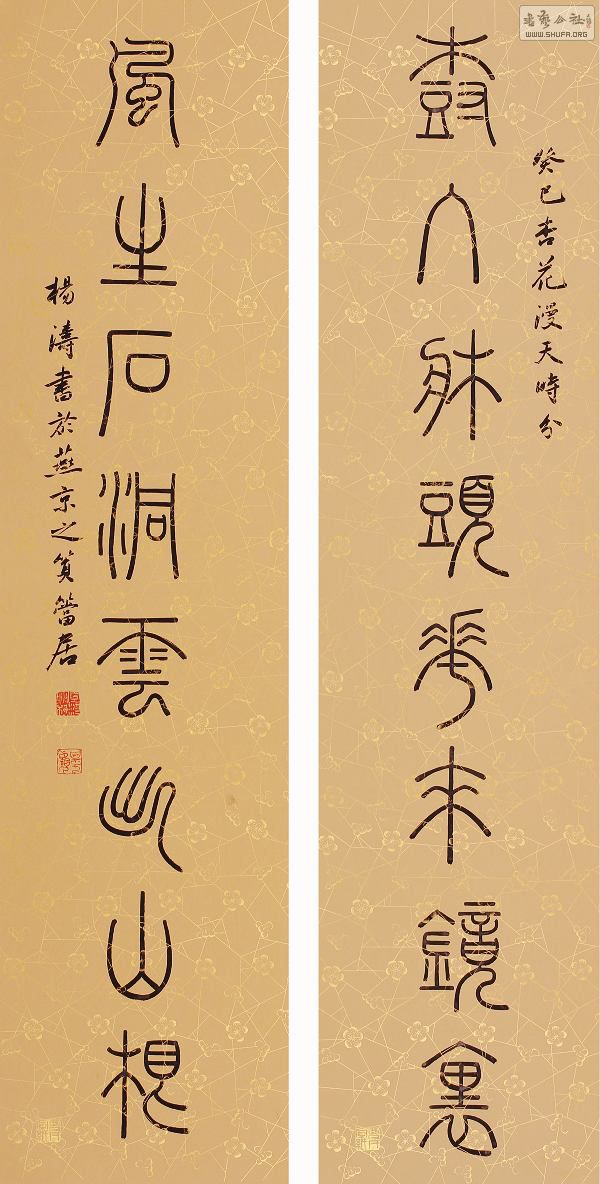 書藝公社
WWW.SHUFA.ORG
癸巳杏花漫天時分
樹入牀頭華來鏡裏
風生石洞雲出山根
楊濤書於燕京之篔簹居